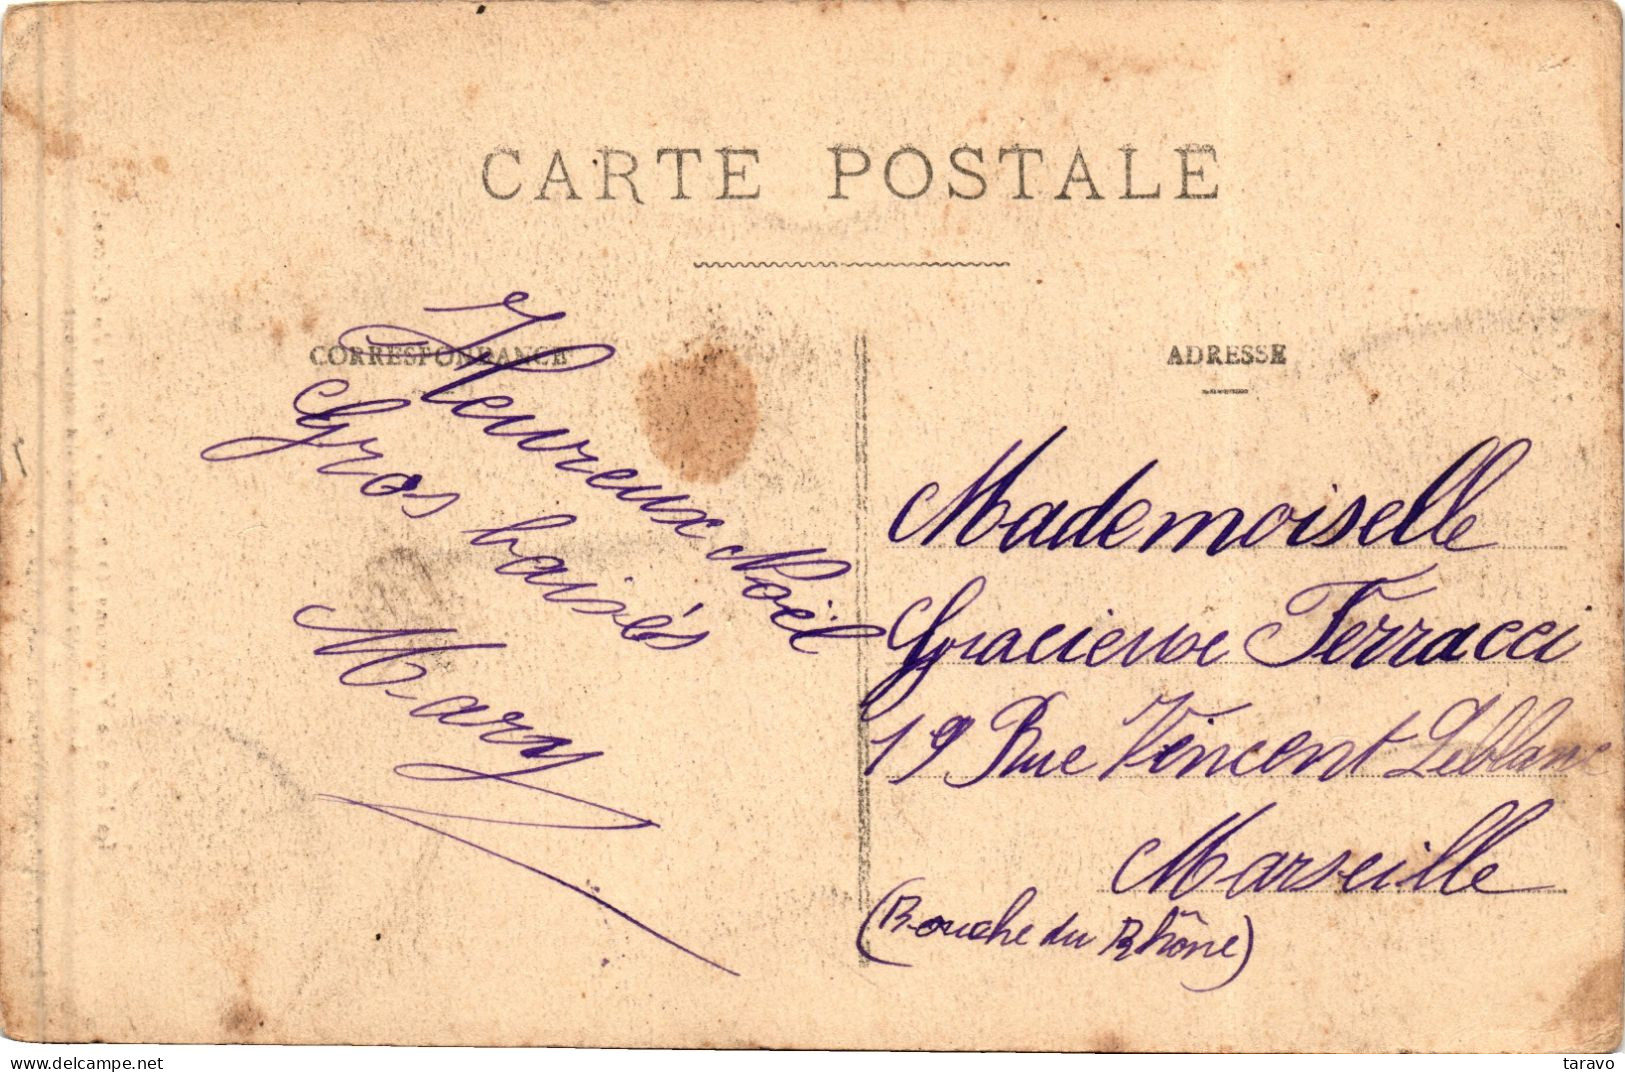 CARTE POSTALE
CORRESPONDANCE
Heureux Noël
Gros baisés
Mary
ADRESSE
Mademoiselle
Gracieuse Ferracci
19 Rue Vincent Leblanc
Marseille
(Bouche du Rhône)
www.delcampe.net
taravo